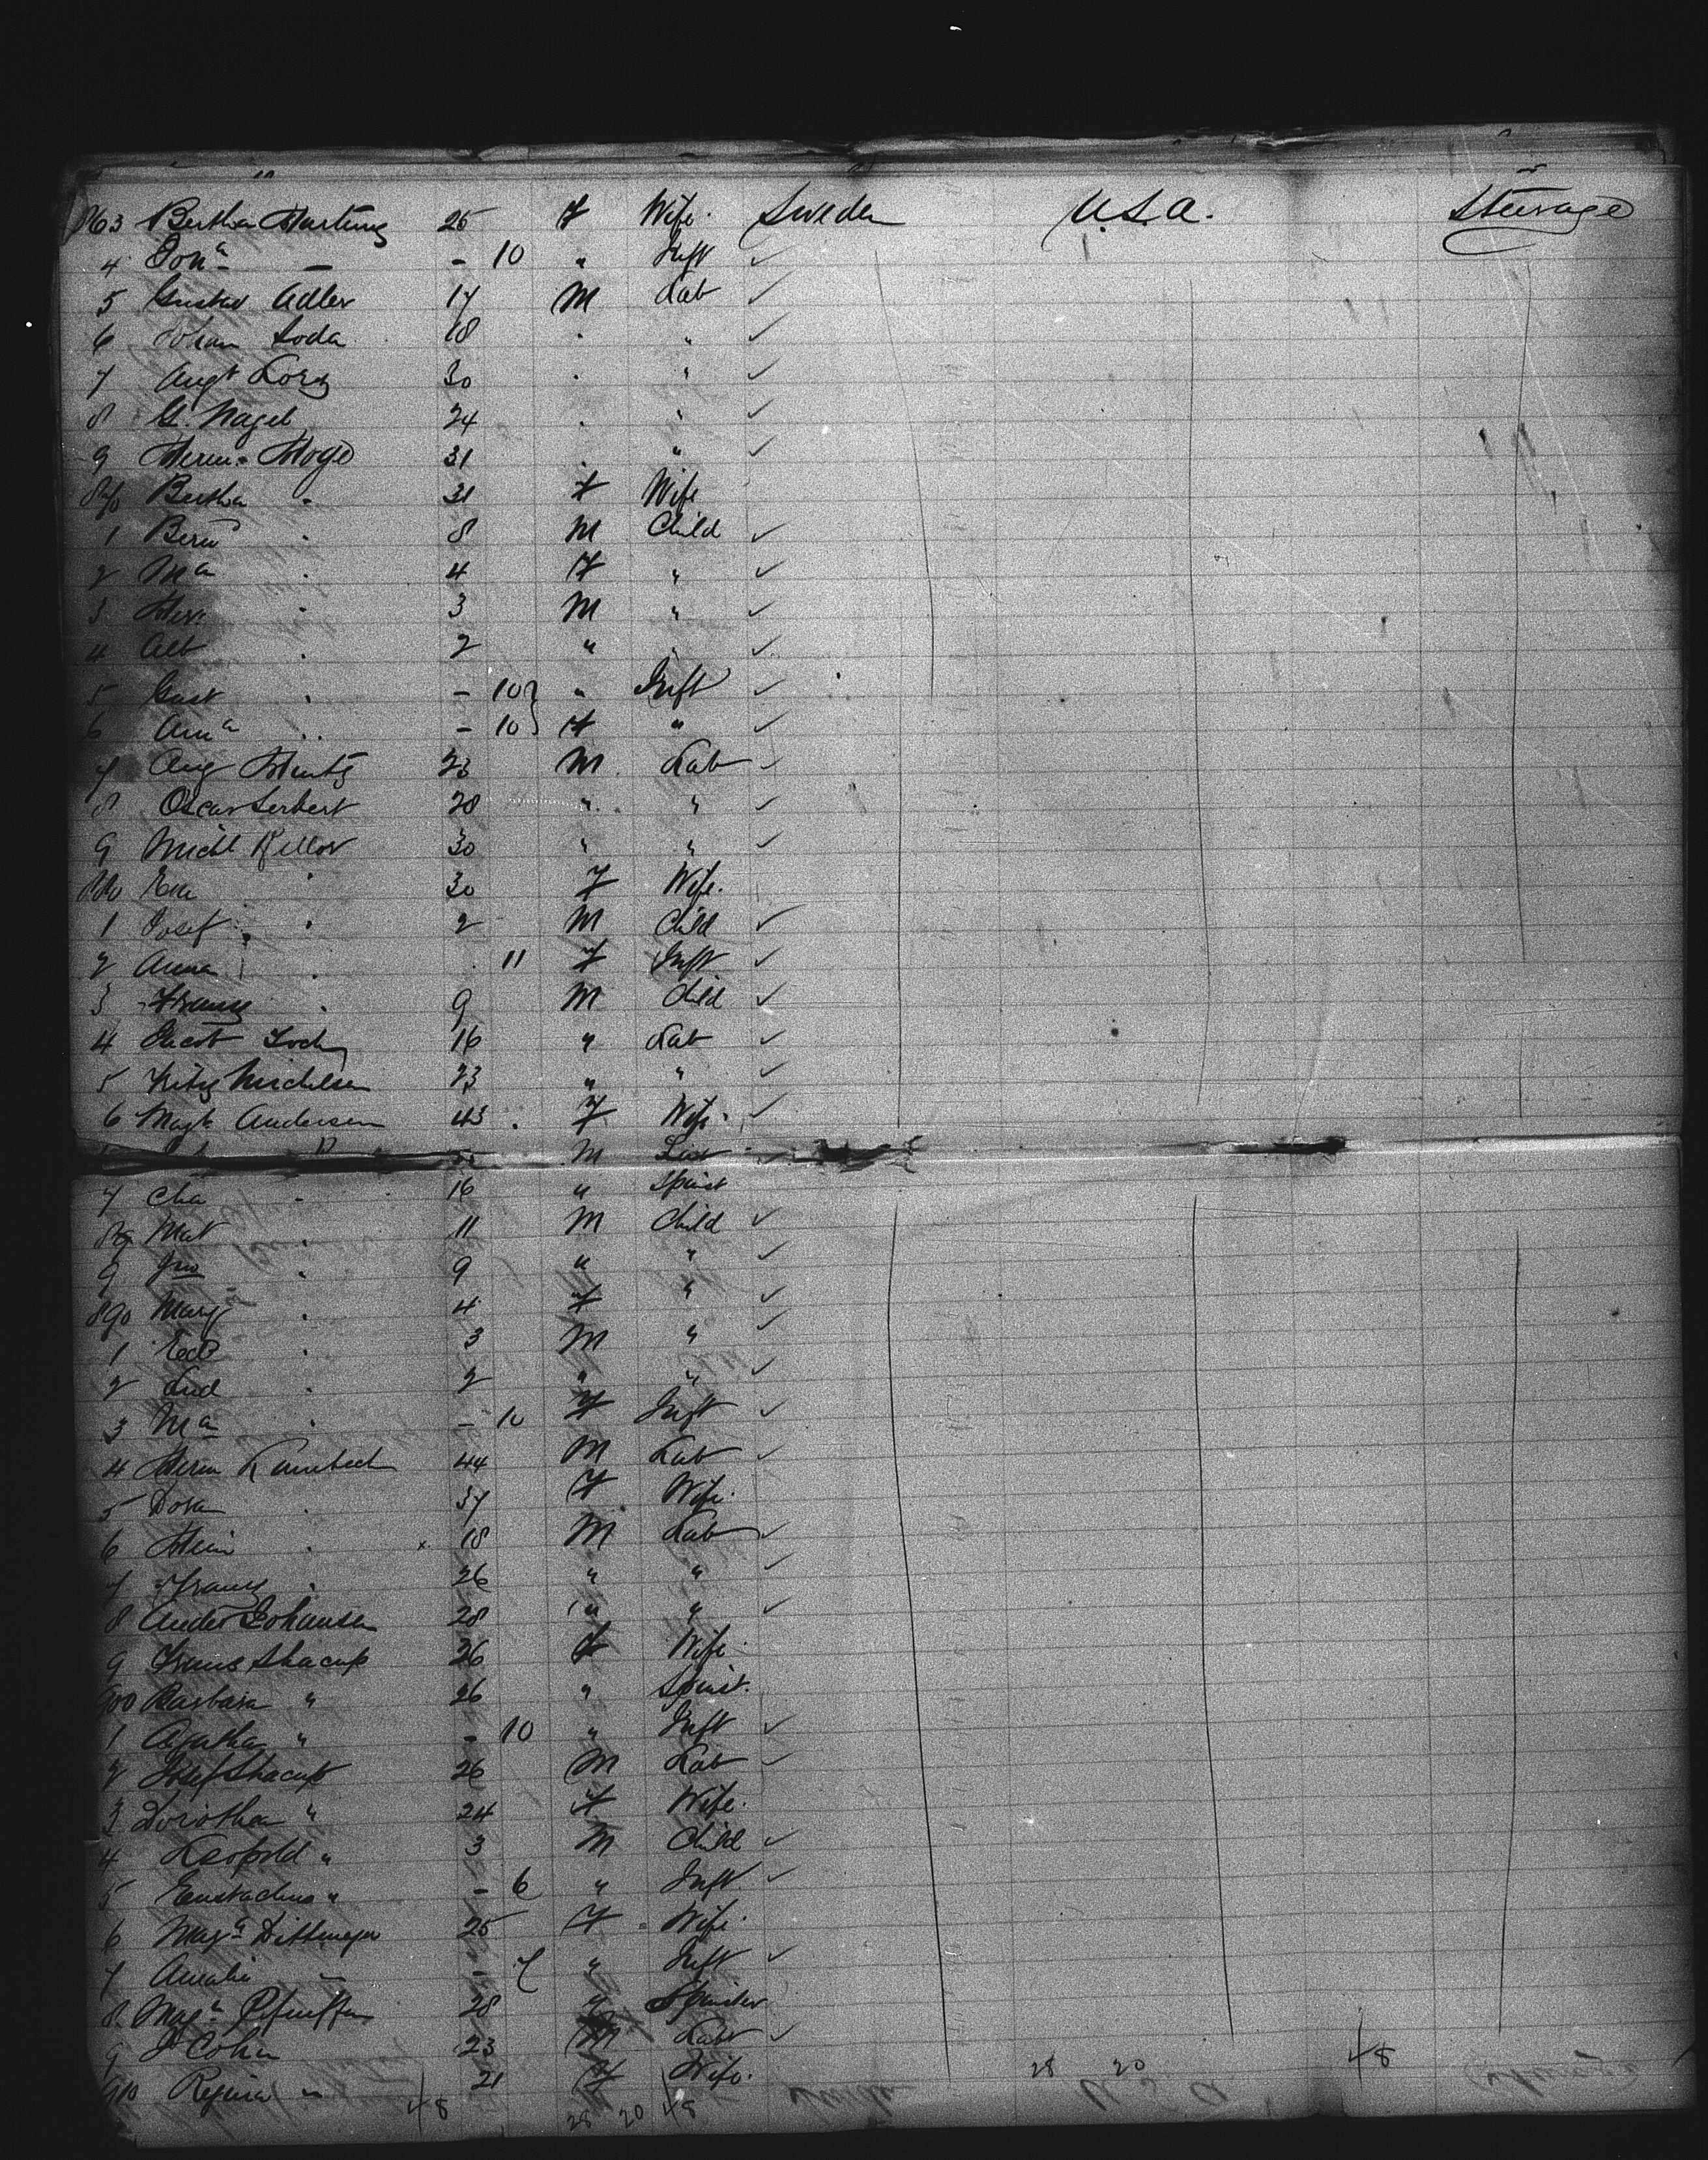 863 Bertha Hartung 25 F Wife. Sweden U.S.A. Steerage
4 Joha — - 10 " Inft ✓
5 Gustav Adler 17 M Lab ✓
6 Johan Soda 18 " " ✓
7 Augt 30 " " ✓
8 G. Nagel 24 " " ✓
9 Herm. Hoge 31 " " ✓
870 Bertha " 31 F Wife
1 " 8 M Child ✓
2 Ma " 4 F " ✓
3 Her. " 3 M " ✓
4 Alb " 2 " " ✓
5 Gust " - 10 " Inft ✓
6 Ama " - 10 F " ✓
7 Aug Hintz 23 M Lab ✓
8 Oscar Serbert 28 " " ✓
9 Michl Kellor 30 " " ✓
880 Eva " 30 F Wife.
1 Josef " 2 M Child ✓
2 Anna " 11 F Inft ✓
3 Franz " 9 M Child ✓
4 Jacob 16 " Lab ✓
5 Fritz Michelsen 23 " " ✓
6 Magte Andersen 43 F Wife. ✓
M
7 Cha " 16 " Spinst
88 Mat " 11 M Child ✓
9 Jno " 9 " " ✓
890 Mary " 4 F " ✓
1 Ed " 3 M " ✓
2 Lud " 2 " " ✓
3 Ma " - 10 F Inft ✓
4 Herm Rambech 44 M Lab ✓
5 Dora " 37 F Wife.
6 Hein " x 18 M Lab ✓
7 Franz " 26 " " ✓
8 Ander Johansen 28 " " ✓
9 Shacup 26 F Wife.
900 Barbara " 26 " Spinst.
1 Agatha " - 10 " Inft ✓
2 Josef Shacup 26 M Lab ✓
3 Dorothea " 24 F Wife.
4 Leopold " 3 M Child ✓
5 Eustachus " - 6 " Inft ✓
6 Maga Dittmeyer 25 F Wife.
7 Amalie — - 7 " Inft ✓
8 Maga 28 " Spinster
9 J Cohn 23 M Lab ✓
910 Regina " 21 F Wife.
48 28 20 48 28 20 48